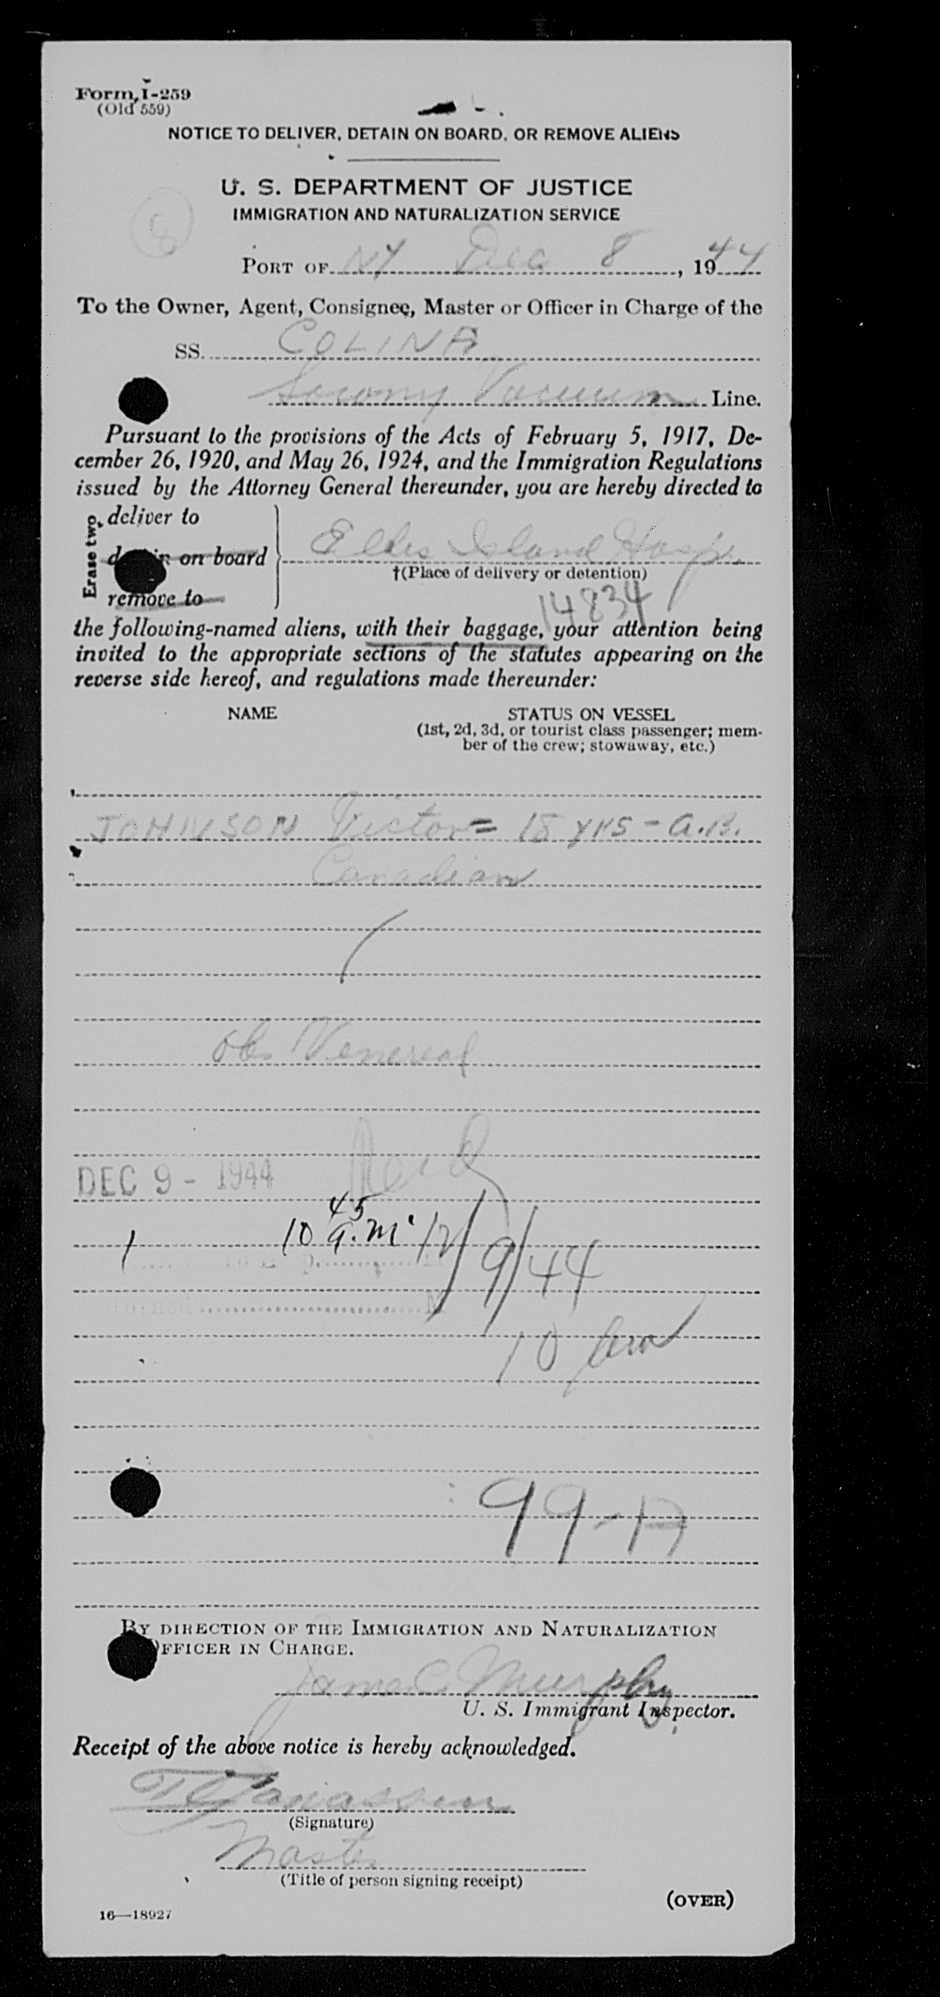 Form I-259
(Old 559)
NOTICE TO DELIVER, DETAIN ON BOARD, OR REMOVE ALIENS
U. S. DEPARTMENT OF JUSTICE
IMMIGRATION AND NATURALIZATION SERVICE
8
PORT OF NY Dec 8, 1944
To the Owner, Agent, Consignee, Master or Officer in Charge of the
SS. COLINA
Socony Vacuum Line.
Pursuant to the provisions of the Acts of February 5, 1917, De-
cember 26, 1920, and May 26, 1924, and the Immigration Regulations
issued by the Attorney General thereunder, you are hereby directed to
Erase two.
deliver to
detain on board Ellis Island Hosp.
†(Place of delivery or detention)
remove to
14834
the following-named aliens, with their baggage, your attention being
invited to the appropriate sections of the statutes appearing on the
reverse side hereof, and regulations made thereunder:
NAME STATUS ON VESSEL
(1st, 2d, 3d, or tourist class passenger; mem-
ber of the crew; stowaway, etc.)
JOHNSON Victor = 18 yrs - A.B.
Canadian
Venereal
DEC 9 - 1944
1 10 45 a.m. 12/9/44
10 am
99-A
BY DIRECTION OF THE IMMIGRATION AND NATURALIZATION
OFFICER IN CHARGE.
James C Murphy
U. S. Immigrant Inspector.
Receipt of the above notice is hereby acknowledged.
(Signature)
Master
(Title of person signing receipt)
(OVER)
16—18927